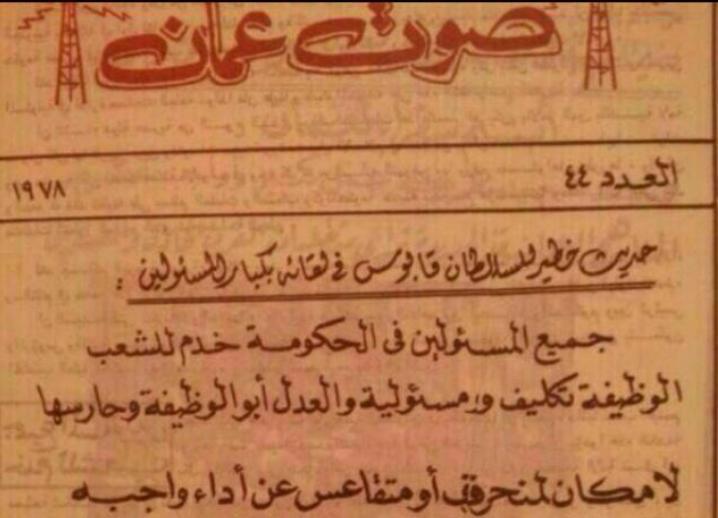 صوت عمان
العدد ٤٤ ١٩٧٨
حديث خطير للسلطان قابوس في لقائه بكبار المسئولين :
جميع المسئولين فى الحكومة خدم للشعب
الوظيفة تكليف ومسئولية والعدل أبو الوظيفة وحارسها
لا مكان لمنحرف أو متقاعس عن أداء واجبه